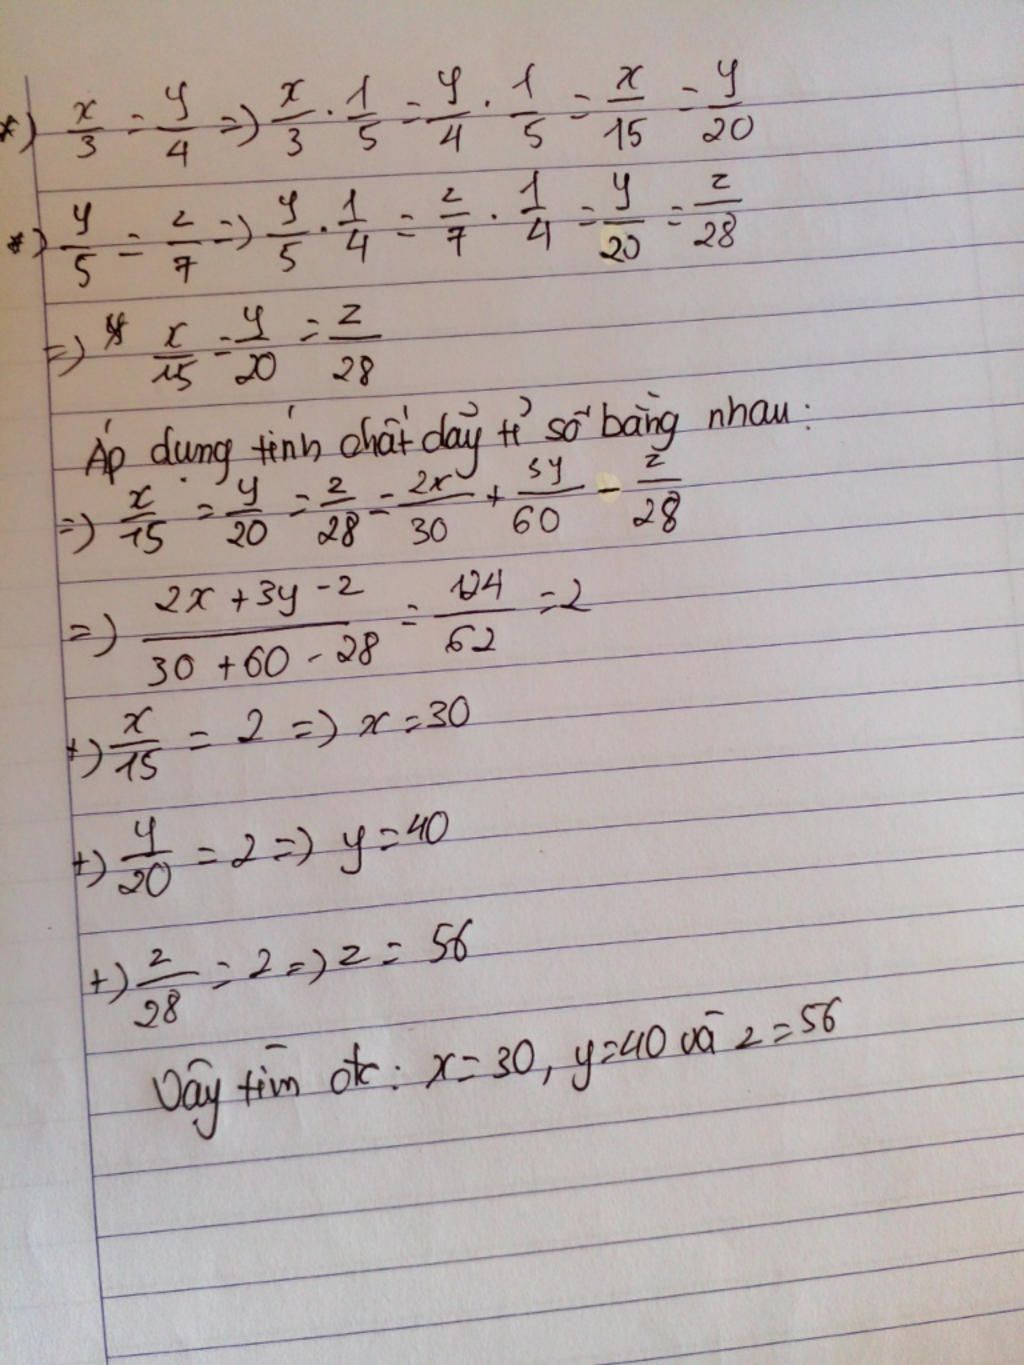 *) x/3 = y/4 => x/3 . 1/5 = y/4 . 1/5 = x/15 = y/20
*) y/5 = z/7 => y/5 . 1/4 = z/7 . 1/4 = y/20 = z/28
=> x/15 = y/20 = z/28
Áp dụng tính chất dãy tỉ số bằng nhau:
=> x/15 = y/20 = z/28 = 2x/30 + 3y/60 - z/28
=> 2x + 3y - z / 30 + 60 - 28 = 124/62 = 2
+) x/15 = 2 => x = 30
+) y/20 = 2 => y = 40
+) z/28 = 2 => z = 56
Vậy tìm đc: x = 30, y = 40 và z = 56